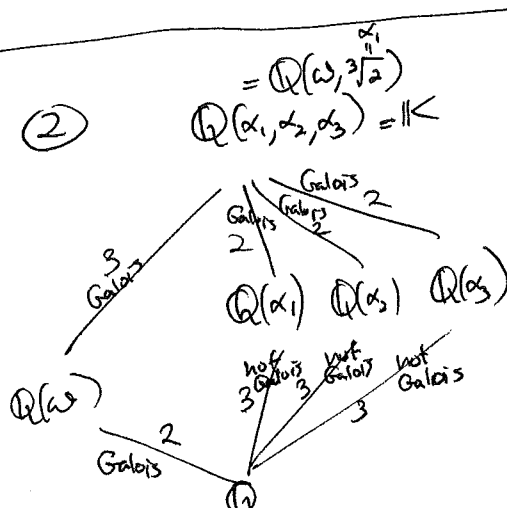 α₁
"
= ℚ(ω, ∛2)
② ℚ(α₁, α₂, α₃) = 𝕂
Galois 2
Galois 2
Galois 2
3 Galois
ℚ(α₁) ℚ(α₂) ℚ(α₃)
not Galois 3
not Galois 3
not Galois 3
ℚ(ω)
2
Galois
ℚ